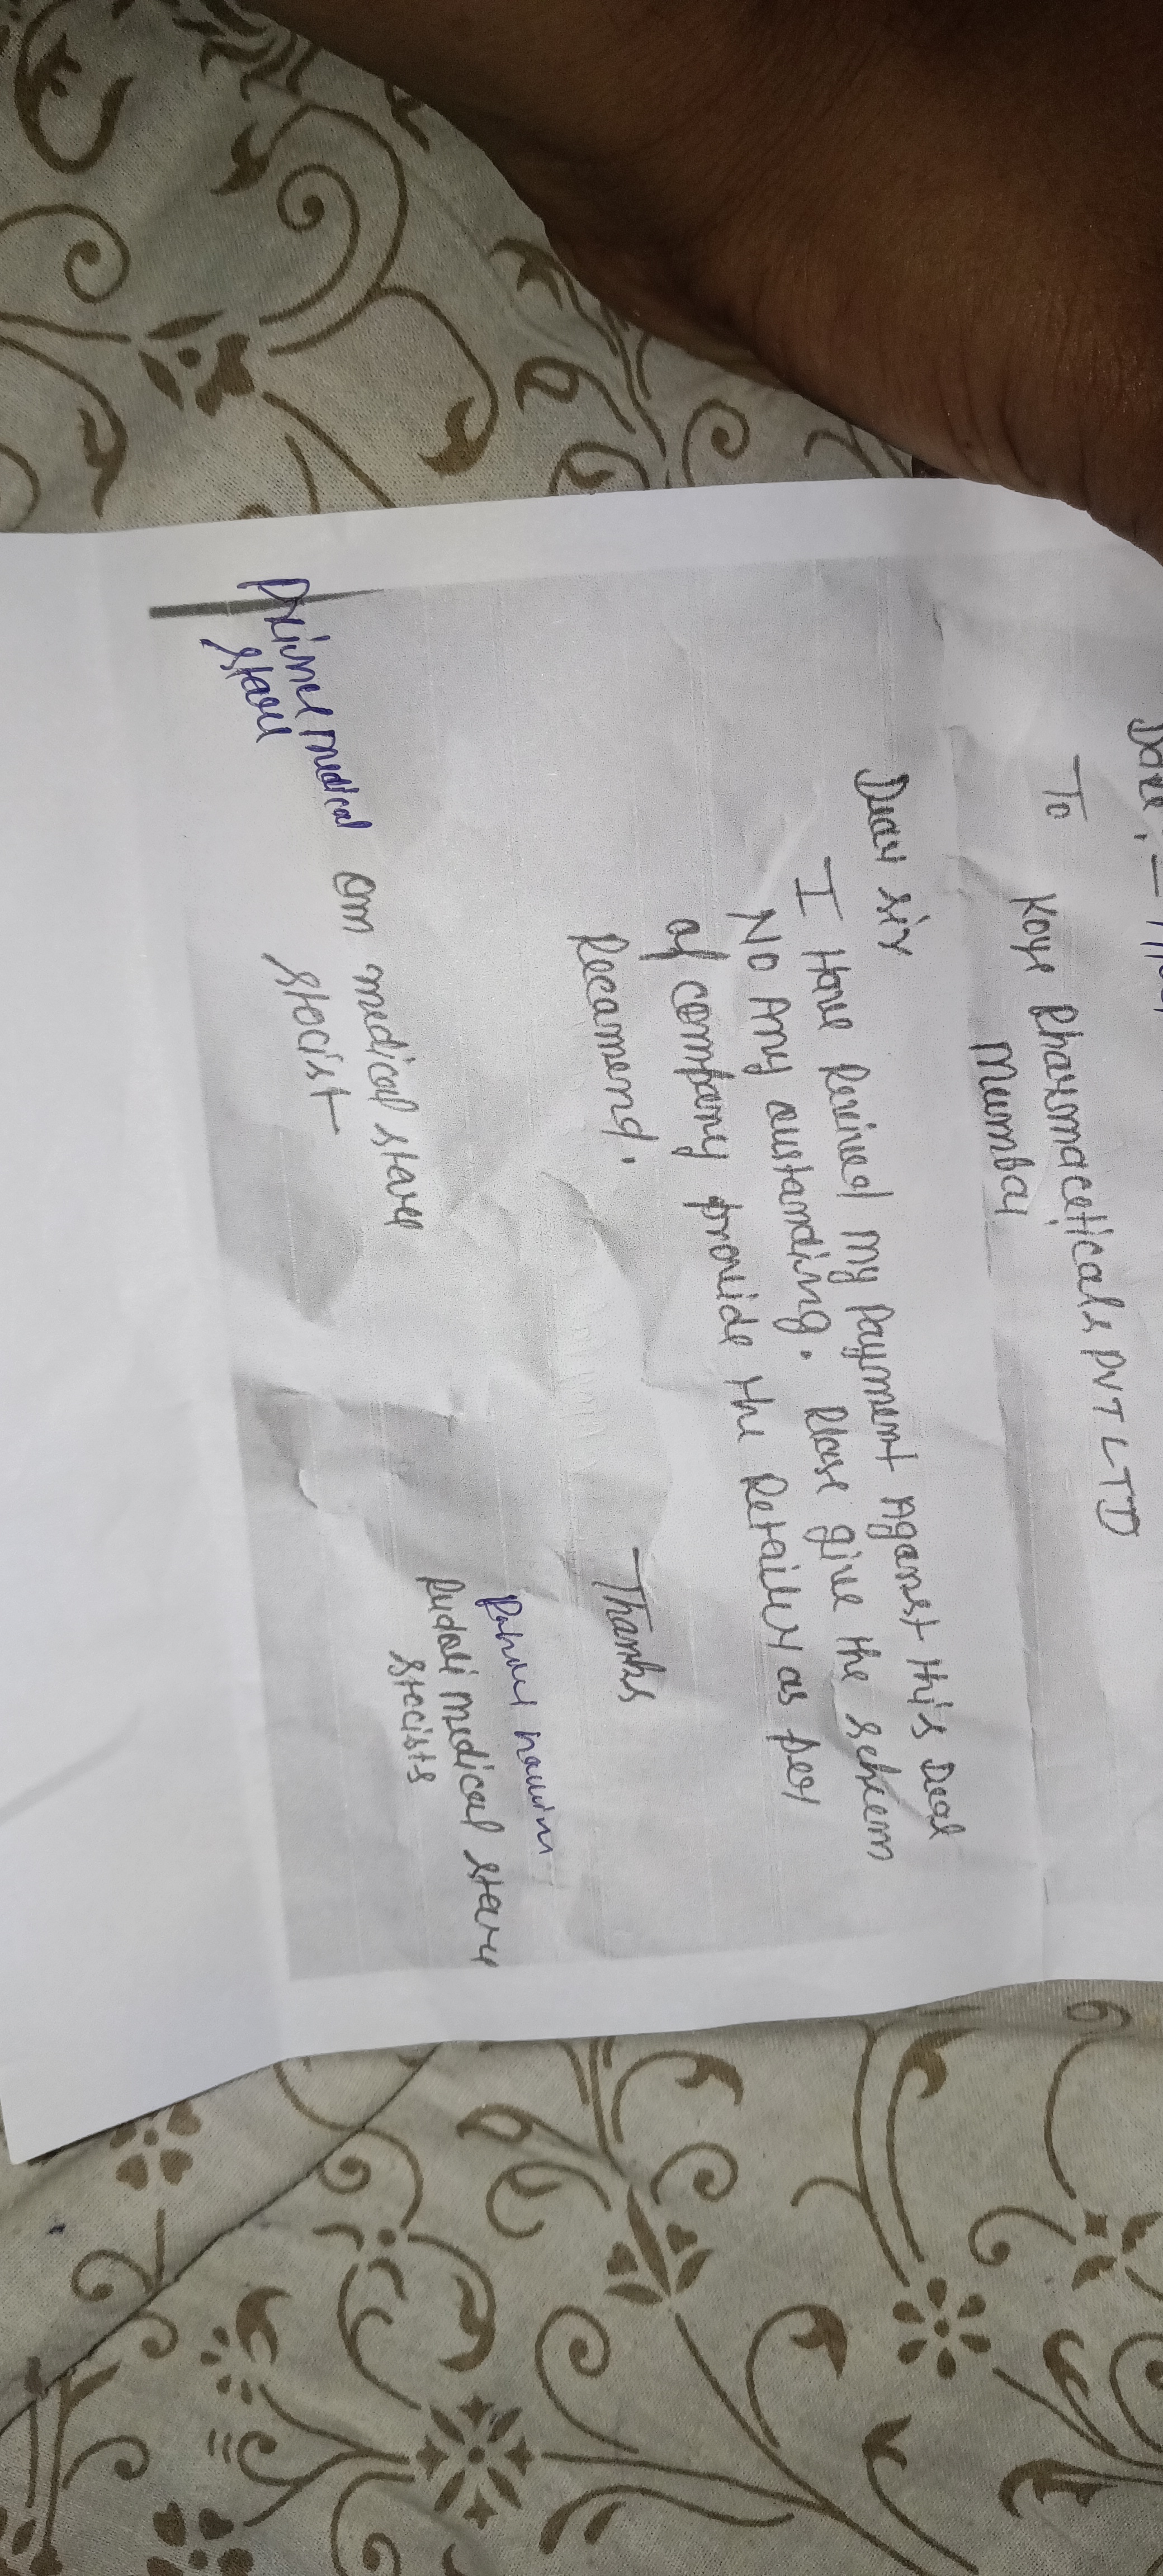 Date :-
To
Koye Pharmaceticals PVT LTD
Mumbai
Dear sir
I Have Reeived my Payment Aganst this Deal
No Any oustanding. Please give the schem
of company provide the Retailer as per
Recamend.
Thanks
Rudori medical store
stocists
om medical store
stocist
Prime medical
store